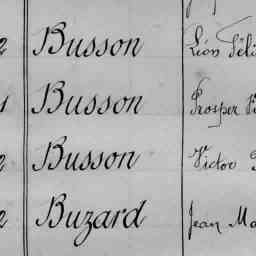 Busson LéonFéli
Busson Prosper
Busson Victor
Buzard Jean Ma